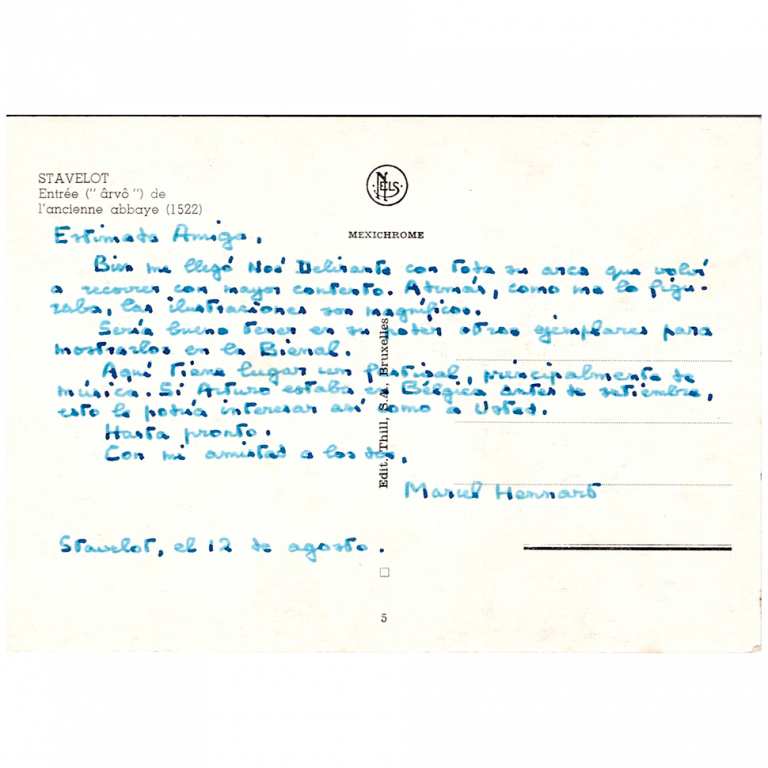 STAVELOT
Entrée (" ârvô ") de
l'ancienne abbaye (1522)
NELS
MEXICHROME
Estimado Amigo,
Bien me llegó Noé Delirante con toda su arca que volví
a recorrer con mayor contento. Además, como me lo figu-
raba, las ilustraciones son magníficas.
Sería bueno tener en su poder otros ejemplares para
mostrarlos en la Bienal.
Aquí tiene lugar un festival, principalmente de
música. Si Arturo estaba en Bélgica antes de setiembre,
esto le podría interesar así como a Usted.
Hasta pronto.
Con mi amistad a los dos,
Marcel Hennart
Stavelot, el 12 de agosto.
Edit. Thill, S.A., Bruxelles
5